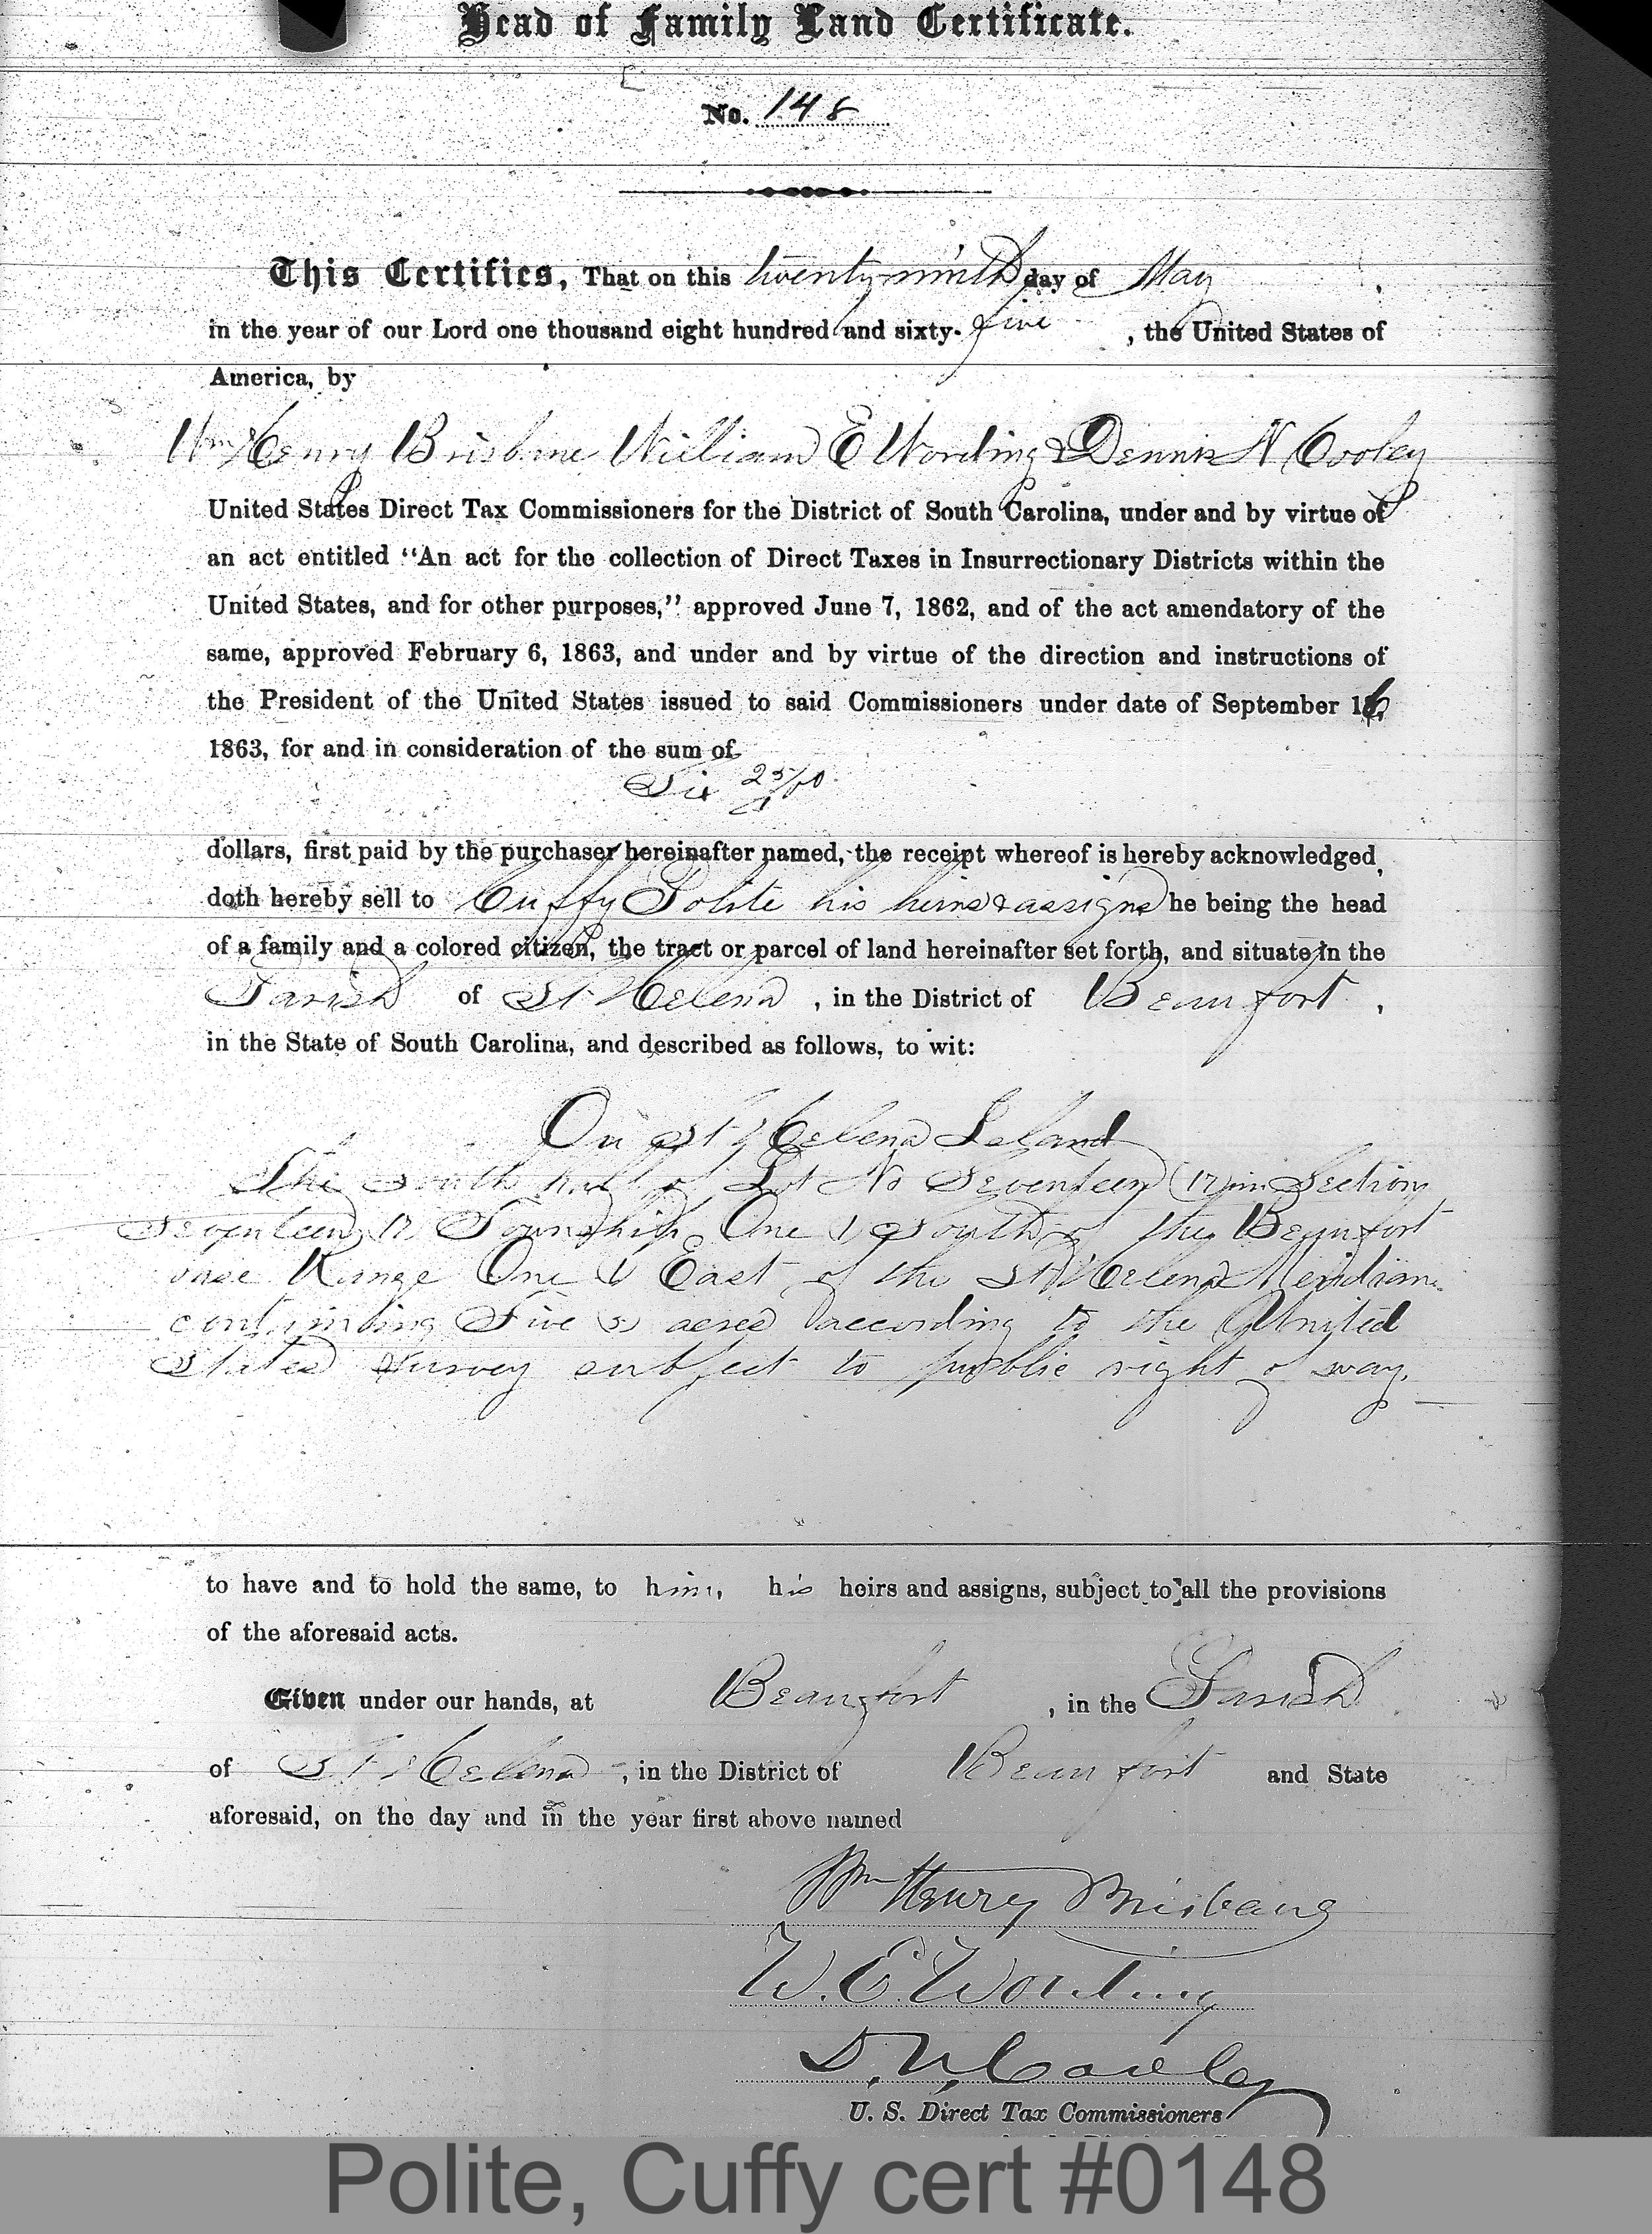 Head of Family Land Certificate.
No. 148
This Certifies, That on this twenty-ninth day of May,
in the year of our Lord one thousand eight hundred and sixty-five, the United States of
America, by
Wm Henry Brisbane William E Wording & Dennis N Cooley
United States Direct Tax Commissioners for the District of South Carolina, under and by virtue of
an act entitled "An act for the collection of Direct Taxes in Insurrectionary Districts within the
United States, and for other purposes," approved June 7, 1862, and of the act amendatory of the
same, approved February 6, 1863, and under and by virtue of the direction and instructions of
the President of the United States issued to said Commissioners under date of September 16,
1863, for and in consideration of the sum of
Six 25/100
dollars, first paid by the purchaser hereinafter named, the receipt whereof is hereby acknowledged,
doth hereby sell to Cuffy Polite his heirs & assigns he being the head
of a family and a colored citizen, the tract or parcel of land hereinafter set forth, and situate in the
Parish of St Helena, in the District of Beaufort,
in the State of South Carolina, and described as follows, to wit:
On St Helena Island
The south half of Lot No Seventeen (17) in Section
Seventeen 17 Township One 1 South of the Beaufort
base Range One (1) East of the St Helena Meridian
containing Five (5) acres according to the United
States Survey subject to public right of way.
to have and to hold the same, to him, his heirs and assigns, subject to all the provisions
of the aforesaid acts.
Given under our hands, at Beaufort, in the Parish
of St Helena, in the District of Beaufort and State
aforesaid, on the day and in the year first above named
Wm Henry Brisbane
W. E. Wording
D. N. Cooley
U. S. Direct Tax Commissioners
Polite, Cuffy cert #0148